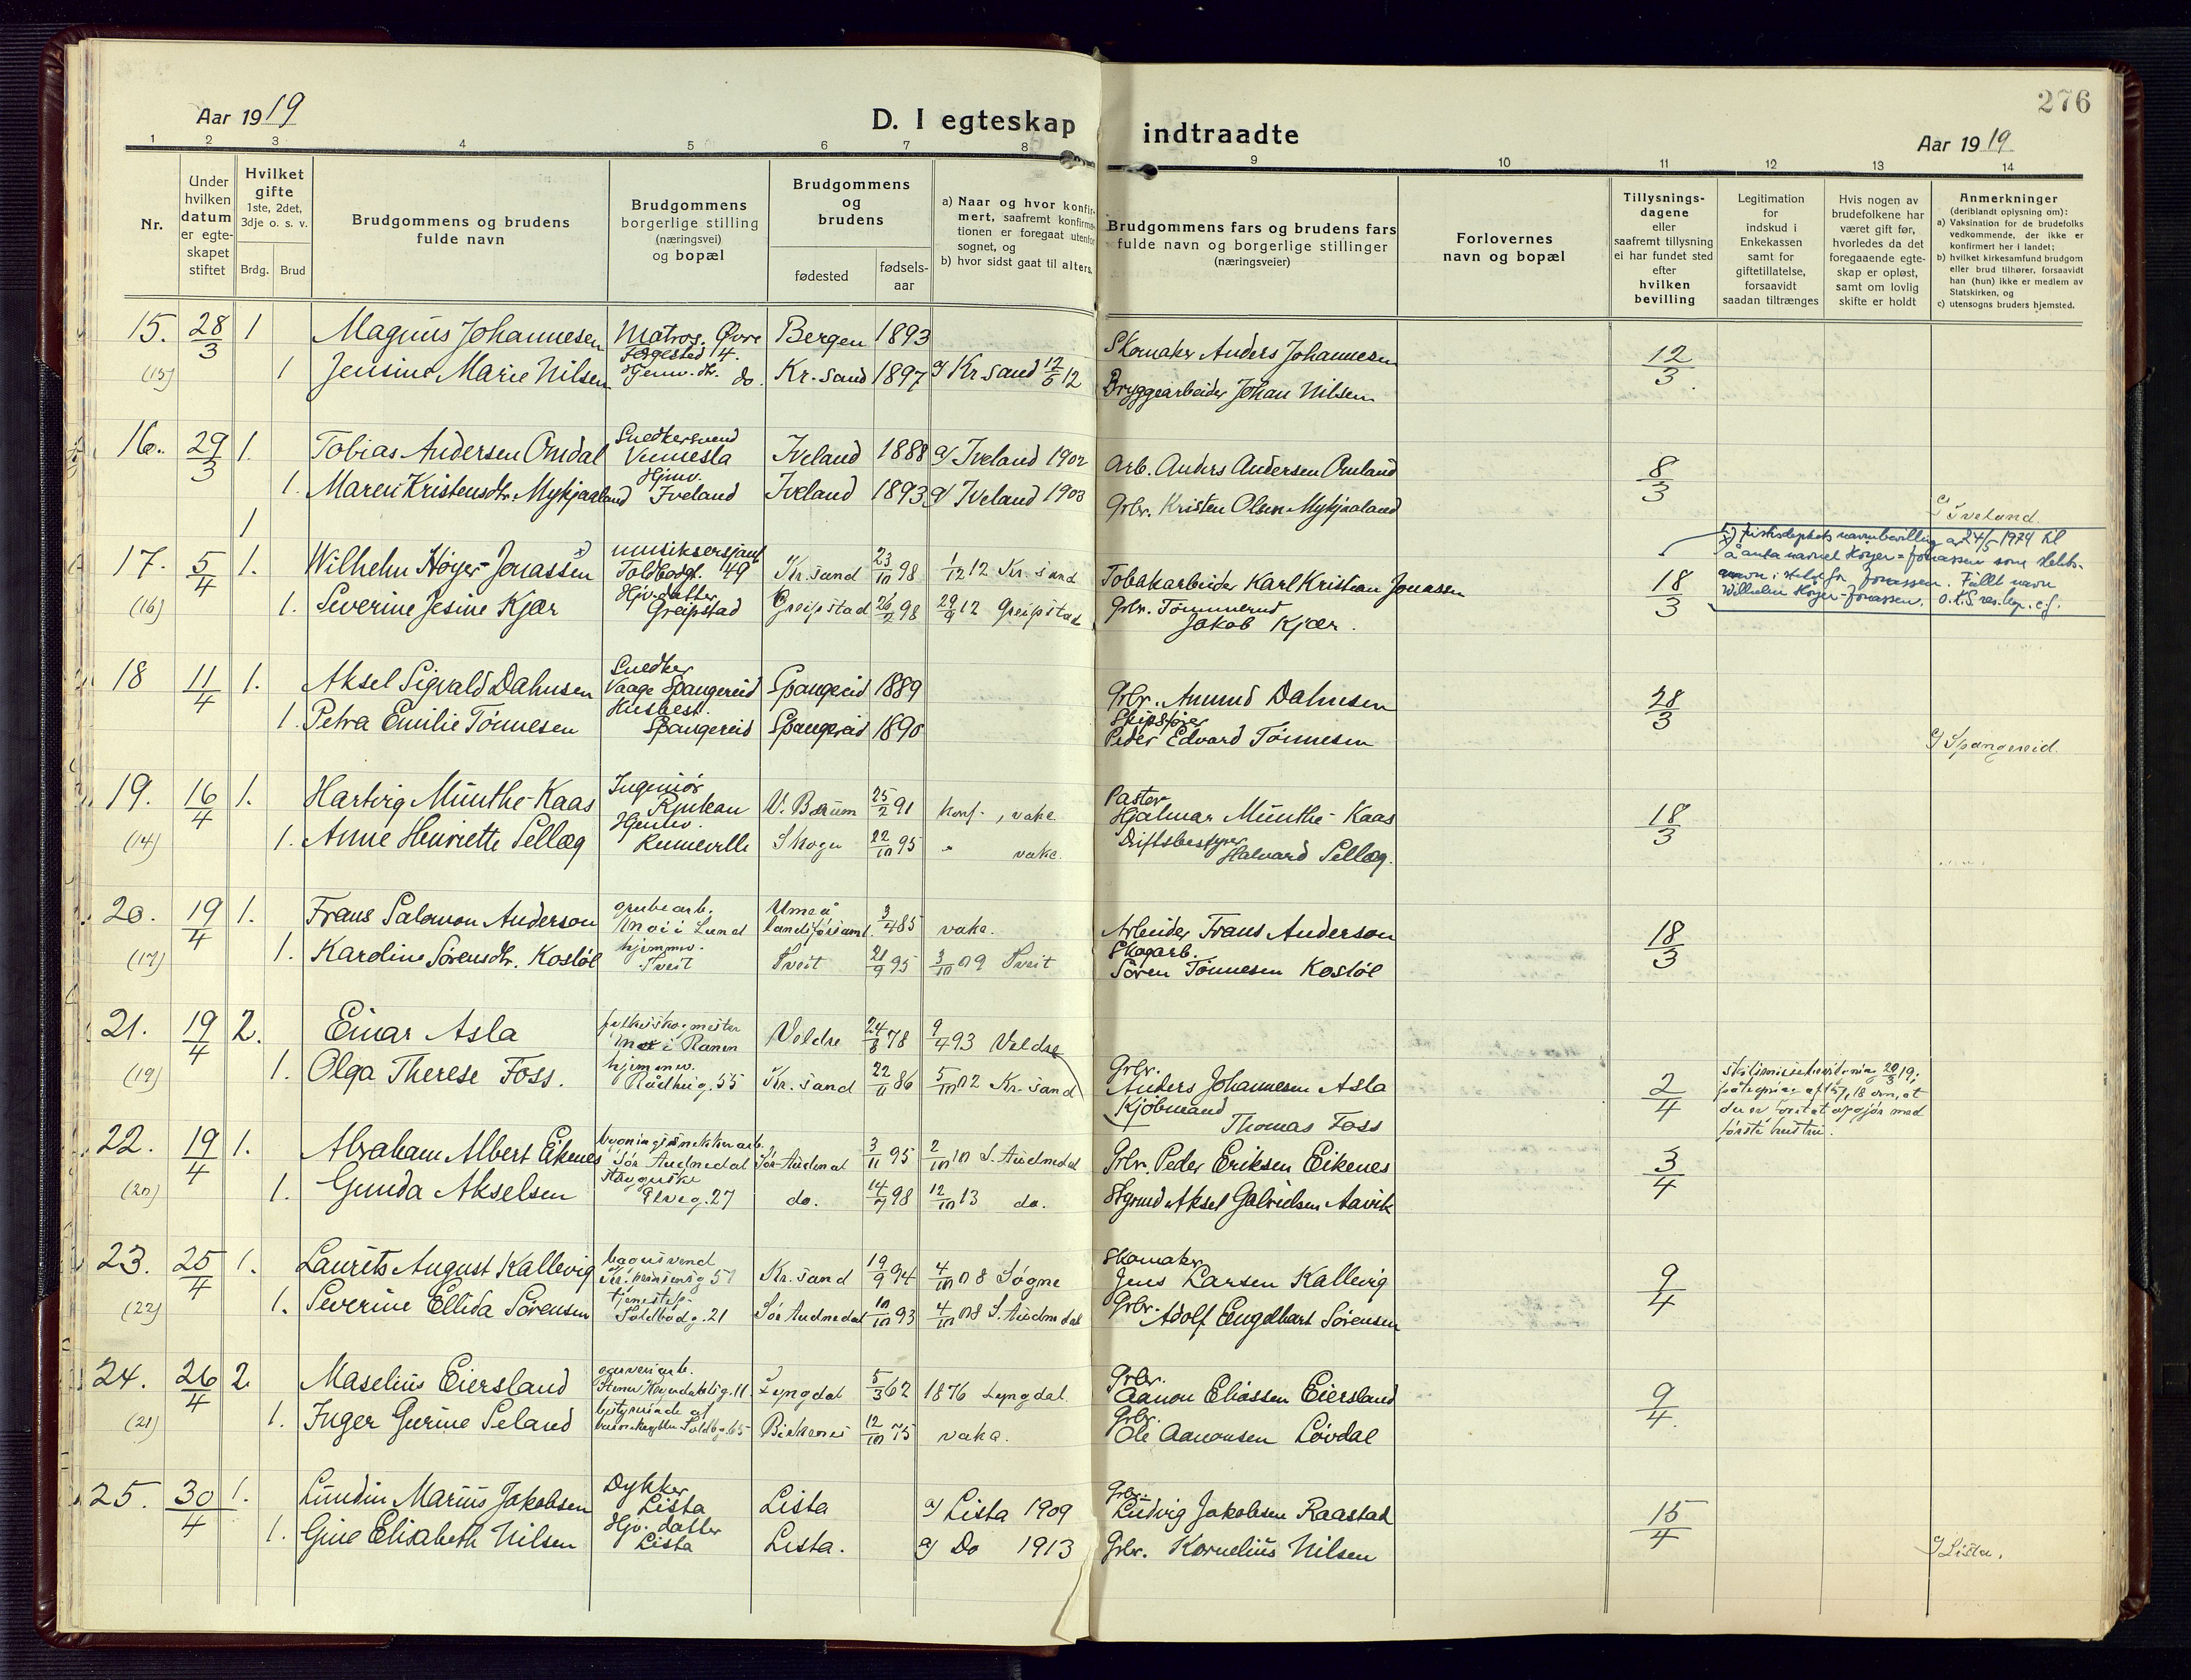 276
Aar 1919
D. I egteskap indtraadte
Aar 1919
1 2 3 4 5 6 7 8 9 10 11 12 13 14
Nr.
Under hvilken datum er egte-skapet stiftet
Hvilket gifte 1ste, 2det, 3dje o. s. v.
Brdg. Brud
Brudgommens og brudens fulde navn
Brudgommens borgerlige stilling (næringsvei) og bopæl
Brudgommens og brudens
fødested
fødsels-aar
a) Naar og hvor konfir-mert, saafremt konfirma-tionen er foregaat utenfor sognet, og
b) hvor sidst gaat til alters.
Brudgommens fars og brudens fars fulde navn og borgerlige stillinger (næringsveier)
Forlovernes navn og bopæl
Tillysnings-dagene eller saafremt tillysning ei har fundet sted efter hvilken bevilling
Legitimation for indskud i Enkekassen samt for giftetillatelse, forsaavidt saadan tiltrænges
Hvis nogen av brudefolkene har været gift før, hvorledes da det foregaaende egte-skap er opløst, samt om lovlig skifte er holdt
Anmerkninger (deriblandt oplysning om):
a) Vaksination for de brudefolks vedkommende, der ikke er konfirmert her i landet;
b) hvilket kirkesamfund brudgom eller brud tilhører, forsaavidt han (hun) ikke er medlem av Statskirken, og
c) utensogns bruders hjemsted.
15. 28/3 1 Magnus Johannesen Matros. Øvre Bergen 1893 Skomaker Anders Johannesen 12/3
(15) 1 Jensine Marie Nilsen do. Kr.sand 1897 a) Kr sand 12/5 12 Bryggearbeider Johan Nilsen
16. 29/3 1. Tobias Andersen Omdal Snedkersvend Vennesla Iveland 1888 a) Iveland 1902 Arb. Anders Andersen Omland 8/3
1. Maren Kristensdtr. Mykjaaland Hjmv. Iveland Iveland 1893 a) Iveland 1903 Grbr. Kristen Olsen Mykjaaland c) Iveland
1
17. 5/4 1. Wilhelm Høyer-Jonassen x) musiksersjant Toldbodgt. 49 Kr.sand 23/10 98 1/12 12 Kr.sand Tobakarbeider Karl Kristian Jonassen 18/3
(16) 1. Severine Jesine Kjær Hjv. datter Greipstad Greipstad 26/2 98 29/9 12 Greipstad Grbr. Tømmermd Jakob Kjær.
x) Justisdeptets navnebevilling av 24/5-1974 til
å anta navnet Høyer-Jonassen som slekts-
navn i stedet for Jonassen. Fullt navn
Wilhelm Høyer-Jonassen. O.K.S. res.kap. e.f.
18 11/4 1. Aksel Sigvald Dahnsen Snedker Vaage Spangereid Spangereid 1889 Grbr. Anund Dahnsen 28/3
1. Petra Emilie Tønnesen Husbest. Spangereid Spangereid 1890 Skipsfører Peder Edvard Tønnesen c) Spangereid.
19. 16/4 1. Hartvig Munthe-Kaas Ingeniør Rjukan V. Bærum 25/2 91 konf., vake. Pastor Hjalmar Munthe-Kaas 18/3
(14) 1. Anne Henriette Sellæg Hjemv. Skoger 22/10 95 " vake. Driftsbestyrer Halvard Sellæg.
20. 19/4 1. Frans Salomon Anderson grubearb. Umeå landsförsaml. 3/4 85 vake. Arbeider Frans Anderson 18/3
(17) 1. Karoline Sørensdtr. Kostøl hjemmev. Tveit Tveit 21/9 95 3/10 09 Tveit Skogarb. Søren Tønnesen Kostøl
21. 19/4 2. Einar Asla fylkesskogmester Mo i Ranen Veldre 24/8 78 9/4 93 Veldre Grbr. Anders Johannesen Asla 2/4
(19) 1. Olga Therese Foss. hjemmev. Rådhusg. 55 Kr.sand 22/11 86 5/10 02 Kr.sand Kjøbmand Thomas Foss
første hustru.
22. 19/4 1. Abraham Albert Eikenes bygningssnekkerarb. Sør Audnedal Sør-Audnedal 3/11 95 2/10 10 S. Audnedal Grbr. Peder Eriksen Eikenes 3/4
(20) 1. Gunda Akselsen Elveg. 27 do. 14/7 98 12/10 13 do. Aksel Gabrielsen Aavik
23. 25/4 1. Laurits August Kallevig bagersvend 57 Kr.sand 19/9 94 4/10 08 Søgne Skomaker Jens Larsen Kallevig 9/4
(22) 1. Severine Ellida Sørensen tjenestep. Toldbodg. 21 Sør Audnedal 10/10 93 4/10 08 S. Audnedal Grbr. Adolf Engelhart Sørensen
24. 26/4 2 Maselius Eiersland garveriarb. Lyngdal 5/3 62 1876 Lyngdal Grbr. Aanon Eliassen Eiersland 9/4
(21) 1. Inger Gurine Seland Birkenes 12/10 75 vaka. Grbr. Ole Aanonsen Løvdal
25. 30/4 1. Lundin Marius Jakobsen Dykker Lista Lista a) Lista 1909 Grbr. Ludvig Jakobsen Raastad 15/4
1. Gine Elisabeth Nilsen Hjv. datter Lista Lista. a) Do 1913 Grbr. Kornelius Nilsen c) Lista.